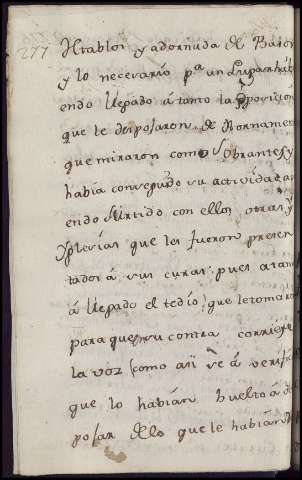 277
Retablos y adornada de Baros
y lo necesario pa un Lugar, hav
endo llegado á tanto la oposicion
que le despojaron de Hornamen
que miraron como sobrantes, y
havia conseguido su actividad, av
endo surtido con ellos otras Y
Yglesias que les fueron presen
tados á sus curas, pues a tan
á llegado el tedio, que le tomar
para que su contra corriese
la voz (como asi se á verifi
que lo habian buelto á de
pojar de lo que le habian